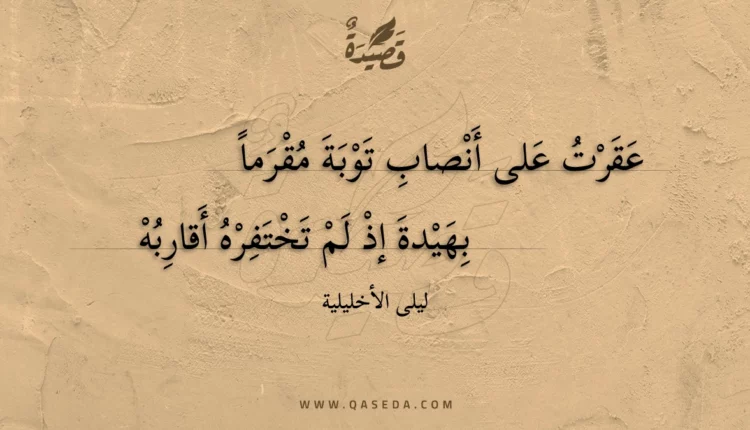 قَصِيْدَةٌ
عَقَرْتُ عَلى أَنْصابِ تَوْبَةَ مُقْرَماً
بِهَيْدةَ إذْ لَمْ تَخْتَفِرْهُ أَقارِبُهْ
ليلى الأخليلية
WWW.QASEDA.COM